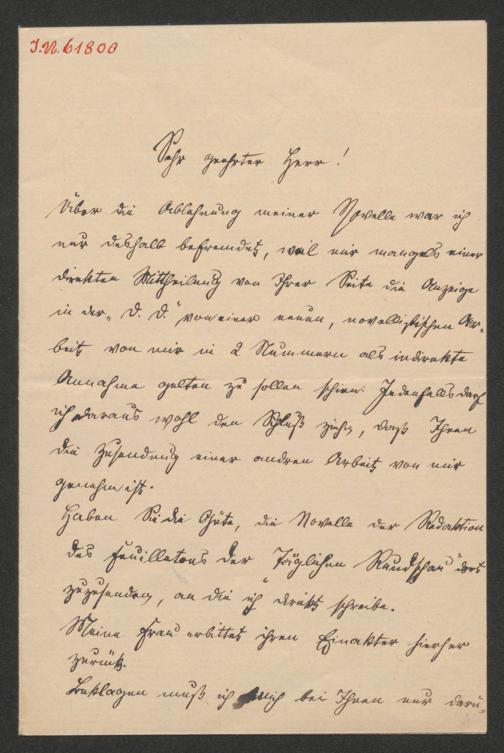 I.N. 61800
Sehr geehrter Herr!
Über die Ablehnung meiner Novelle war ich
nur deshalb befremdet, weil mir mangels einer
direkten Mittheilung von Ihrer Seite die Anzeige
in der „D. D.“ von einer neuen, novellistischen Ar-
beit von mir in 2 Nummern als indirekte
Annahme gelten zu sollen schien. Jedenfalls darf
ich daraus wohl den Schluß ziehen, daß Ihnen
die Zusendung einer andren Arbeit von mir
genehm ist.
Haben Sie die Güte, die Novelle der Redaktion
des Feuilletons der „Täglichen Rundschau“ dort
zuzusenden, an die ich direkt schreibe.
Meine Frau erbittet ihren Einakter hierher
zurück.
Beklagen muß ich mich bei Ihnen nur darü-